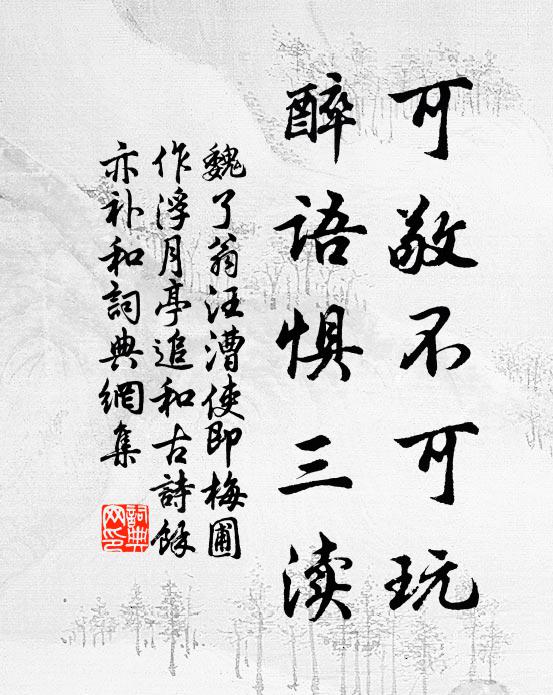 可敬不可玩
醉语惧三渎
魏了翁汪漕使即梅圃
作浮月亭追和古詩餘
亦补和詞典網集
詞典网印